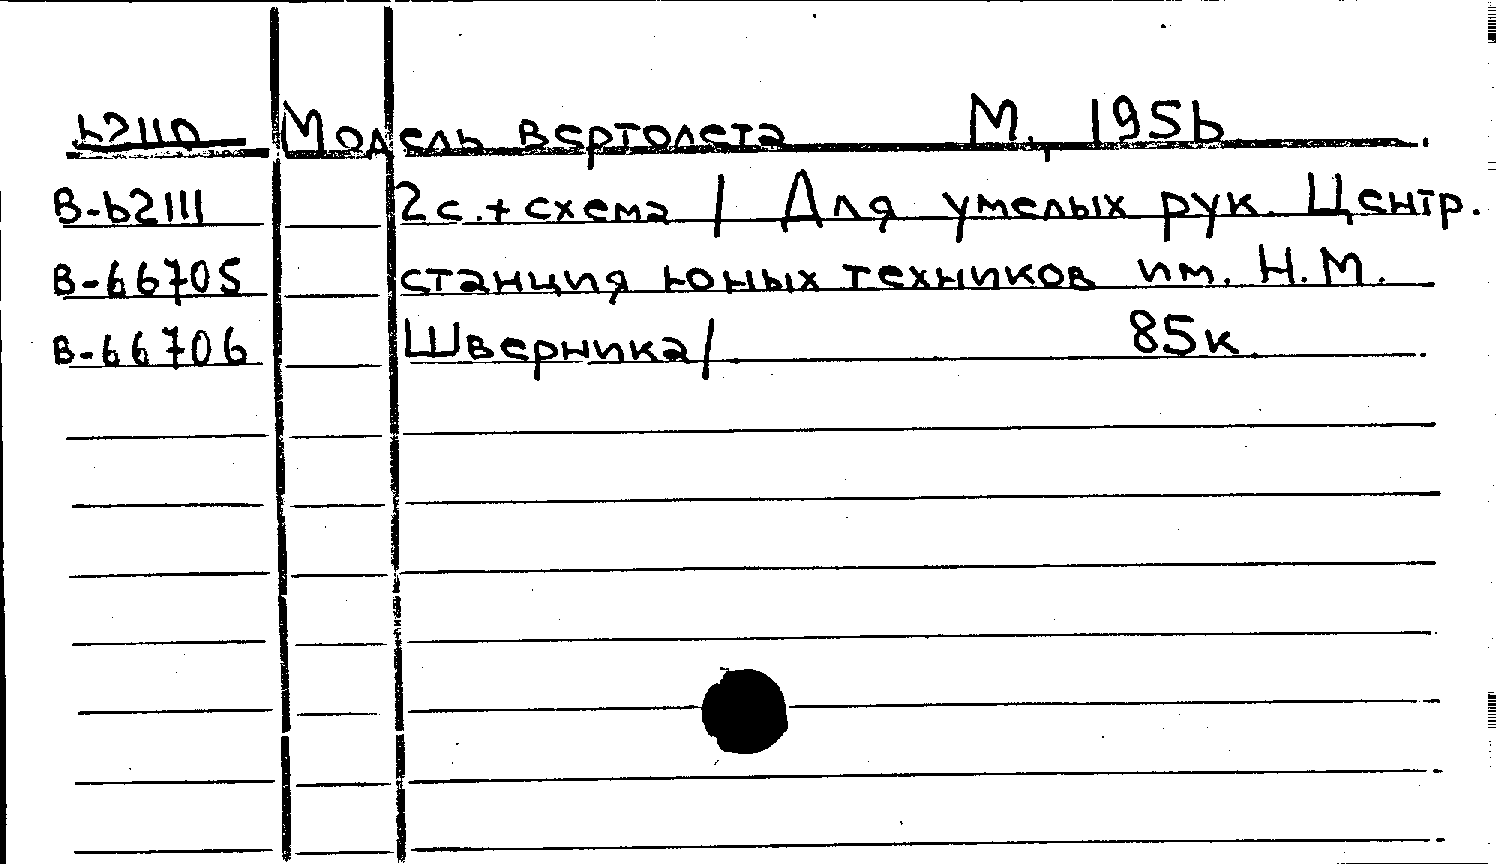 62110 Модель вертолета М., 1956
В-62111 2с.+схема / Для умелых рук. Центр.
В-66705 станция юных техников им. Н.М.
В-66706 Шверника/ 85к.